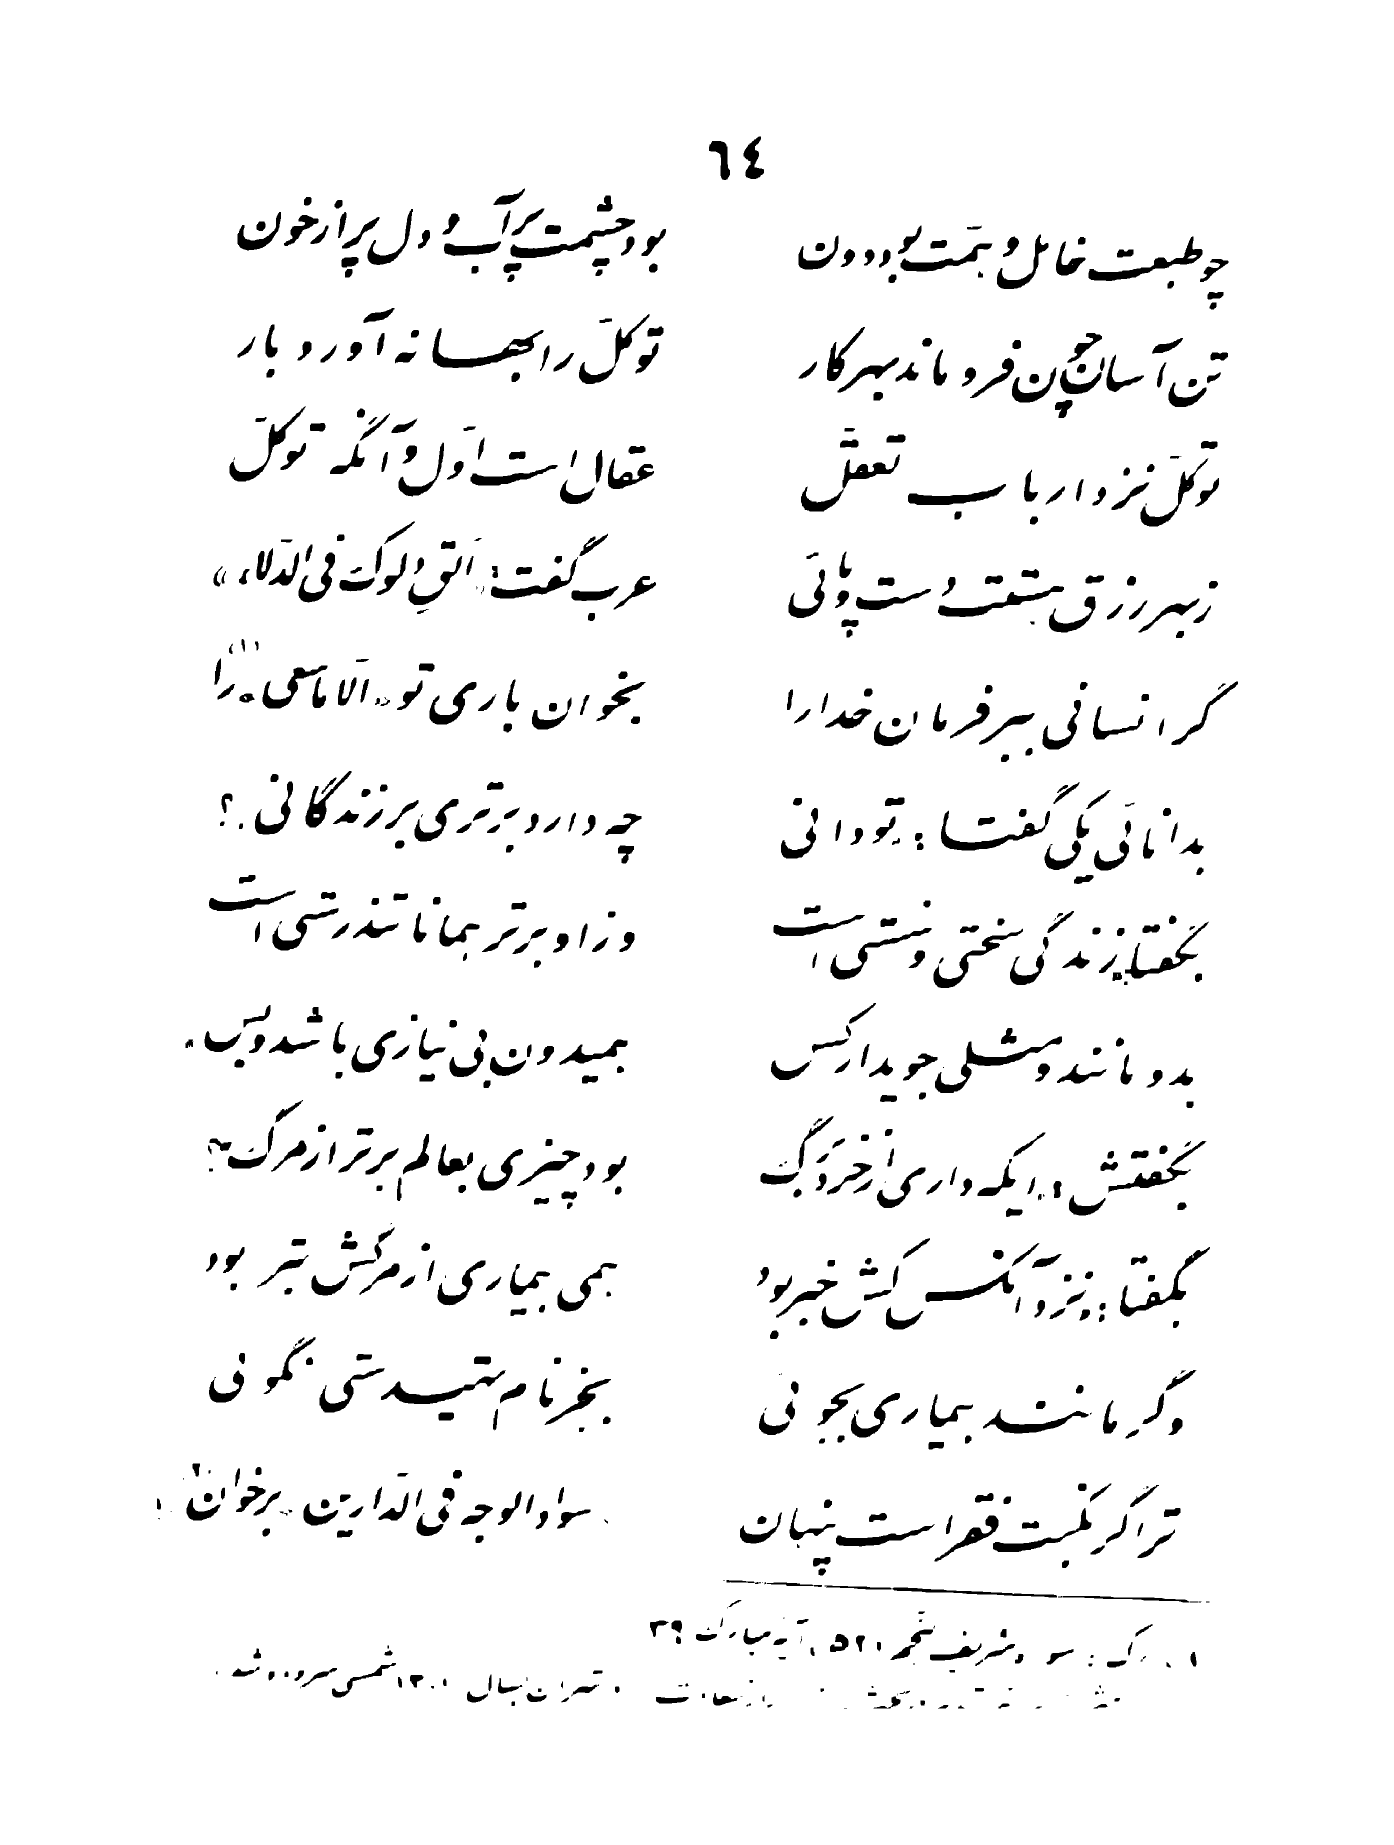 ٦٤
چو طبعت خامل و همّت بود دون
بود چشمت پر آب و دل پر از خون
تن آسان چون فرو ماند بهر کار
توکّل را بهانه آورد بار
توکّل نزد ارباب تعقّل
عقال است اوّل و آنگه توکّل
ز بهر رزق بشتفت و ست پائی
عرب گفت: «اَلقِ دلوک فی الدّلاء»
گر انسانی ببر فرمان خدا را
بخوان باری تو «الّا ما سعی» را (۱)
بدانائی یکی گفتا: «تو دانی
چه دارد برتری بر زندگانی؟
بگفتا: زندگی سختی و سستی است
وز او برتر همانا تندرستی است
بدو مانند و مثلی جوید ار کس
همیدون بی نیازی باشد و بس»
بگفتش: «ایکه داری از خرد برگ
بود چیزی بعالم برتر از مرگ؟»
بگفتا: «نزد آنکس کش خبر بود
همی بیماری از مرگش بتر بود
وگر مانند بیماری بجوئی
بجز نام تهیدستی نگوئی
ترا گر نکبت فقر است پنهان
«سواد الوجه فی الدّارین» برخوان»
۱. رک: سوره شریفه نجم ۵۲، آیه مبارک ۳۹
تهران بسال ۱۳۰۱ شمسی سروده شد.